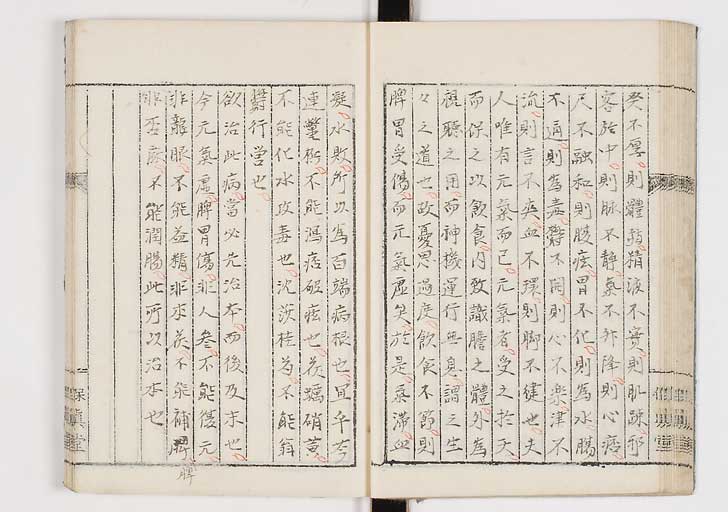 癸不厚則體弱精液不實則肌踈邪
客於中則脉不静氣不升降則心痞
尺不融和則腹痃胃不化則為水腸
不通則為毒鬱不開則心不樂津不
流則言不爽血不環則脚不健也夫
人唯有元氣而已元氣者受之於天
而保之以飲食内致識膽之體外為
視聽之用而神機運行無息謂之生
々之道也故憂思過度飲食不節則
脾胃受傷而元氣虛矣於是氣滯血
凝水敗所以為百端病根也宜乎芩
連鱉術不能瀉痞硇痃也芪蠣硝黄
不能化水攻毒也沈莎桂芎不能解
鬱行営也
欲治此病當必先治本而後及末也
今元氣虛脾胃傷非人參不能復元
非龍眼不能益精非朮芪不能補脾
非杏麻不能潤腸此所以治本也
脾
保真堂